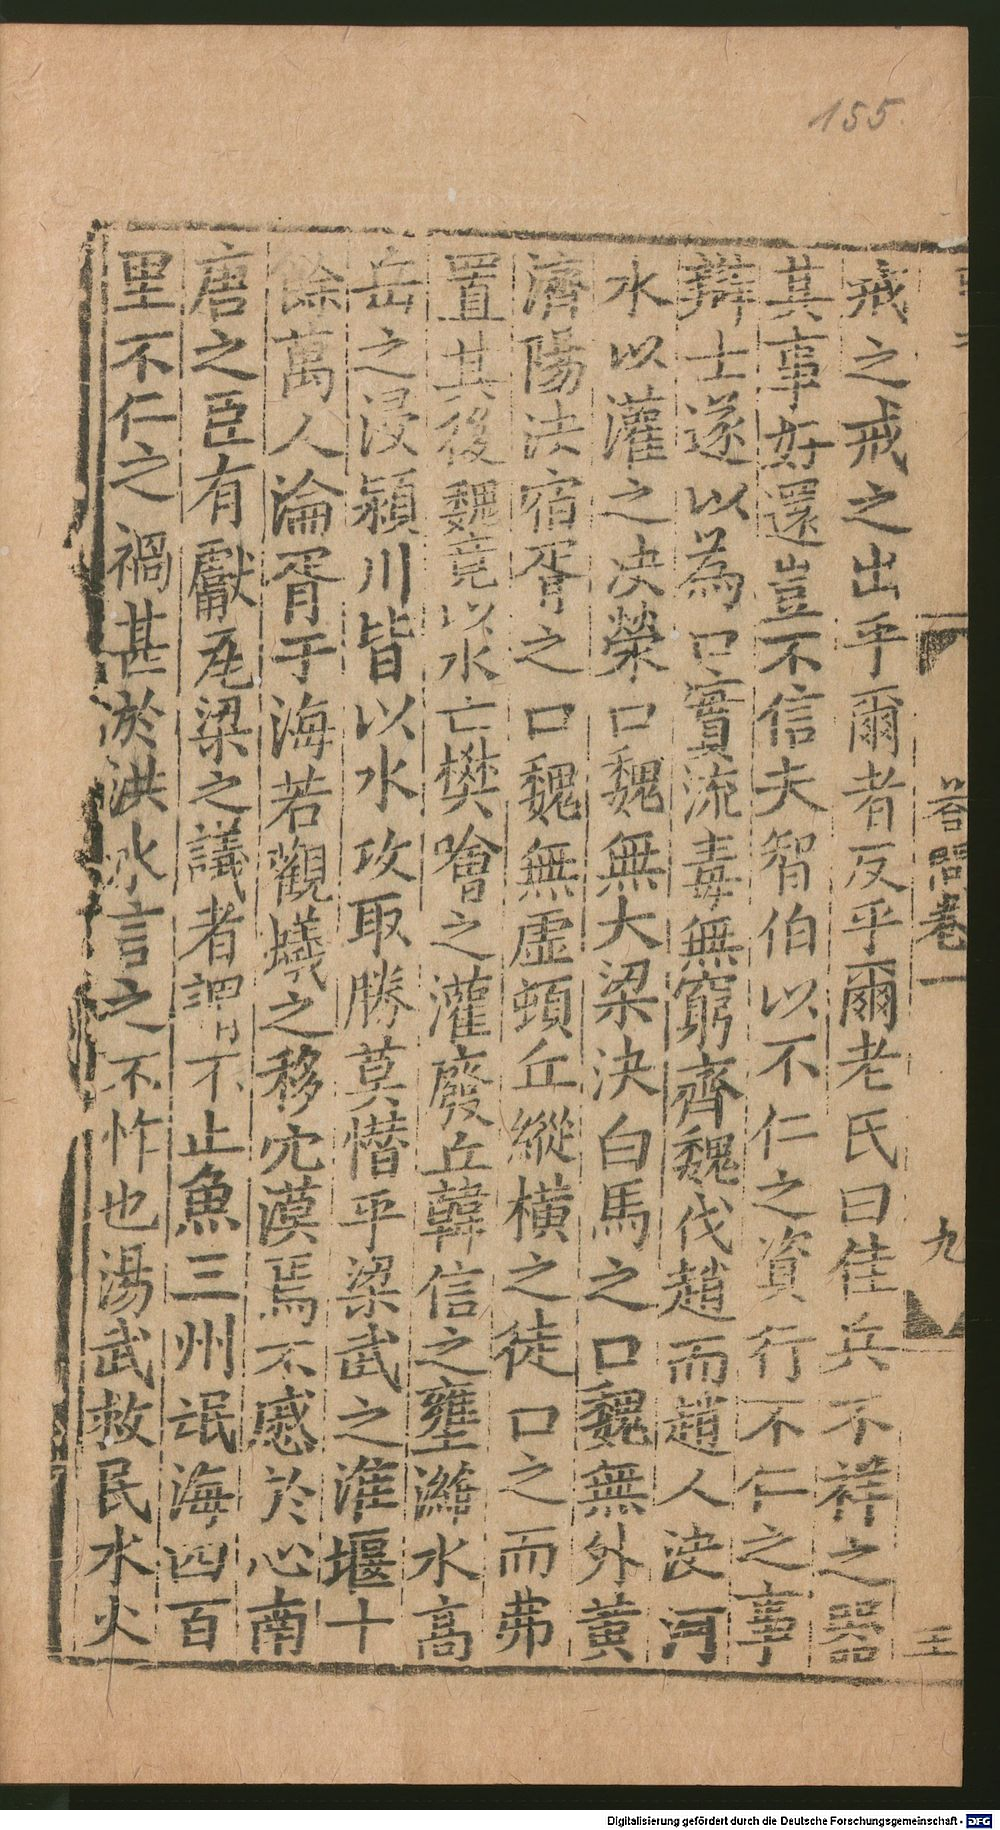 155.
答問卷一
九
王
戒之戒之出乎爾者反乎爾老氏曰佳兵不祥之器
其事好還豈不信夫智伯以不仁之資行不仁之事
辯士遂以為口實流毒無窮齊魏伐趙而趙人決河
水以灌之決滎口魏無大梁決白馬之口魏無外黃
濟陽決宿胥之口魏無虛頓丘縱橫之徒口之而弗
置其後魏竟以水亡樊噲之灌廢丘韓信之壅濰水高
岳之浸潁川皆以水攻取勝莫憯乎梁武之淮堰十
餘萬人淪胥于海若觀蟻之移穴漠焉不慼於心南
唐之臣有獻灌梁之議者謂不止魚三州氓海四百
里不仁之禍甚於洪水言之不怍也湯武救民水火
Digitalisierung gefördert durch die Deutsche Forschungsgemeinschaft - DFG